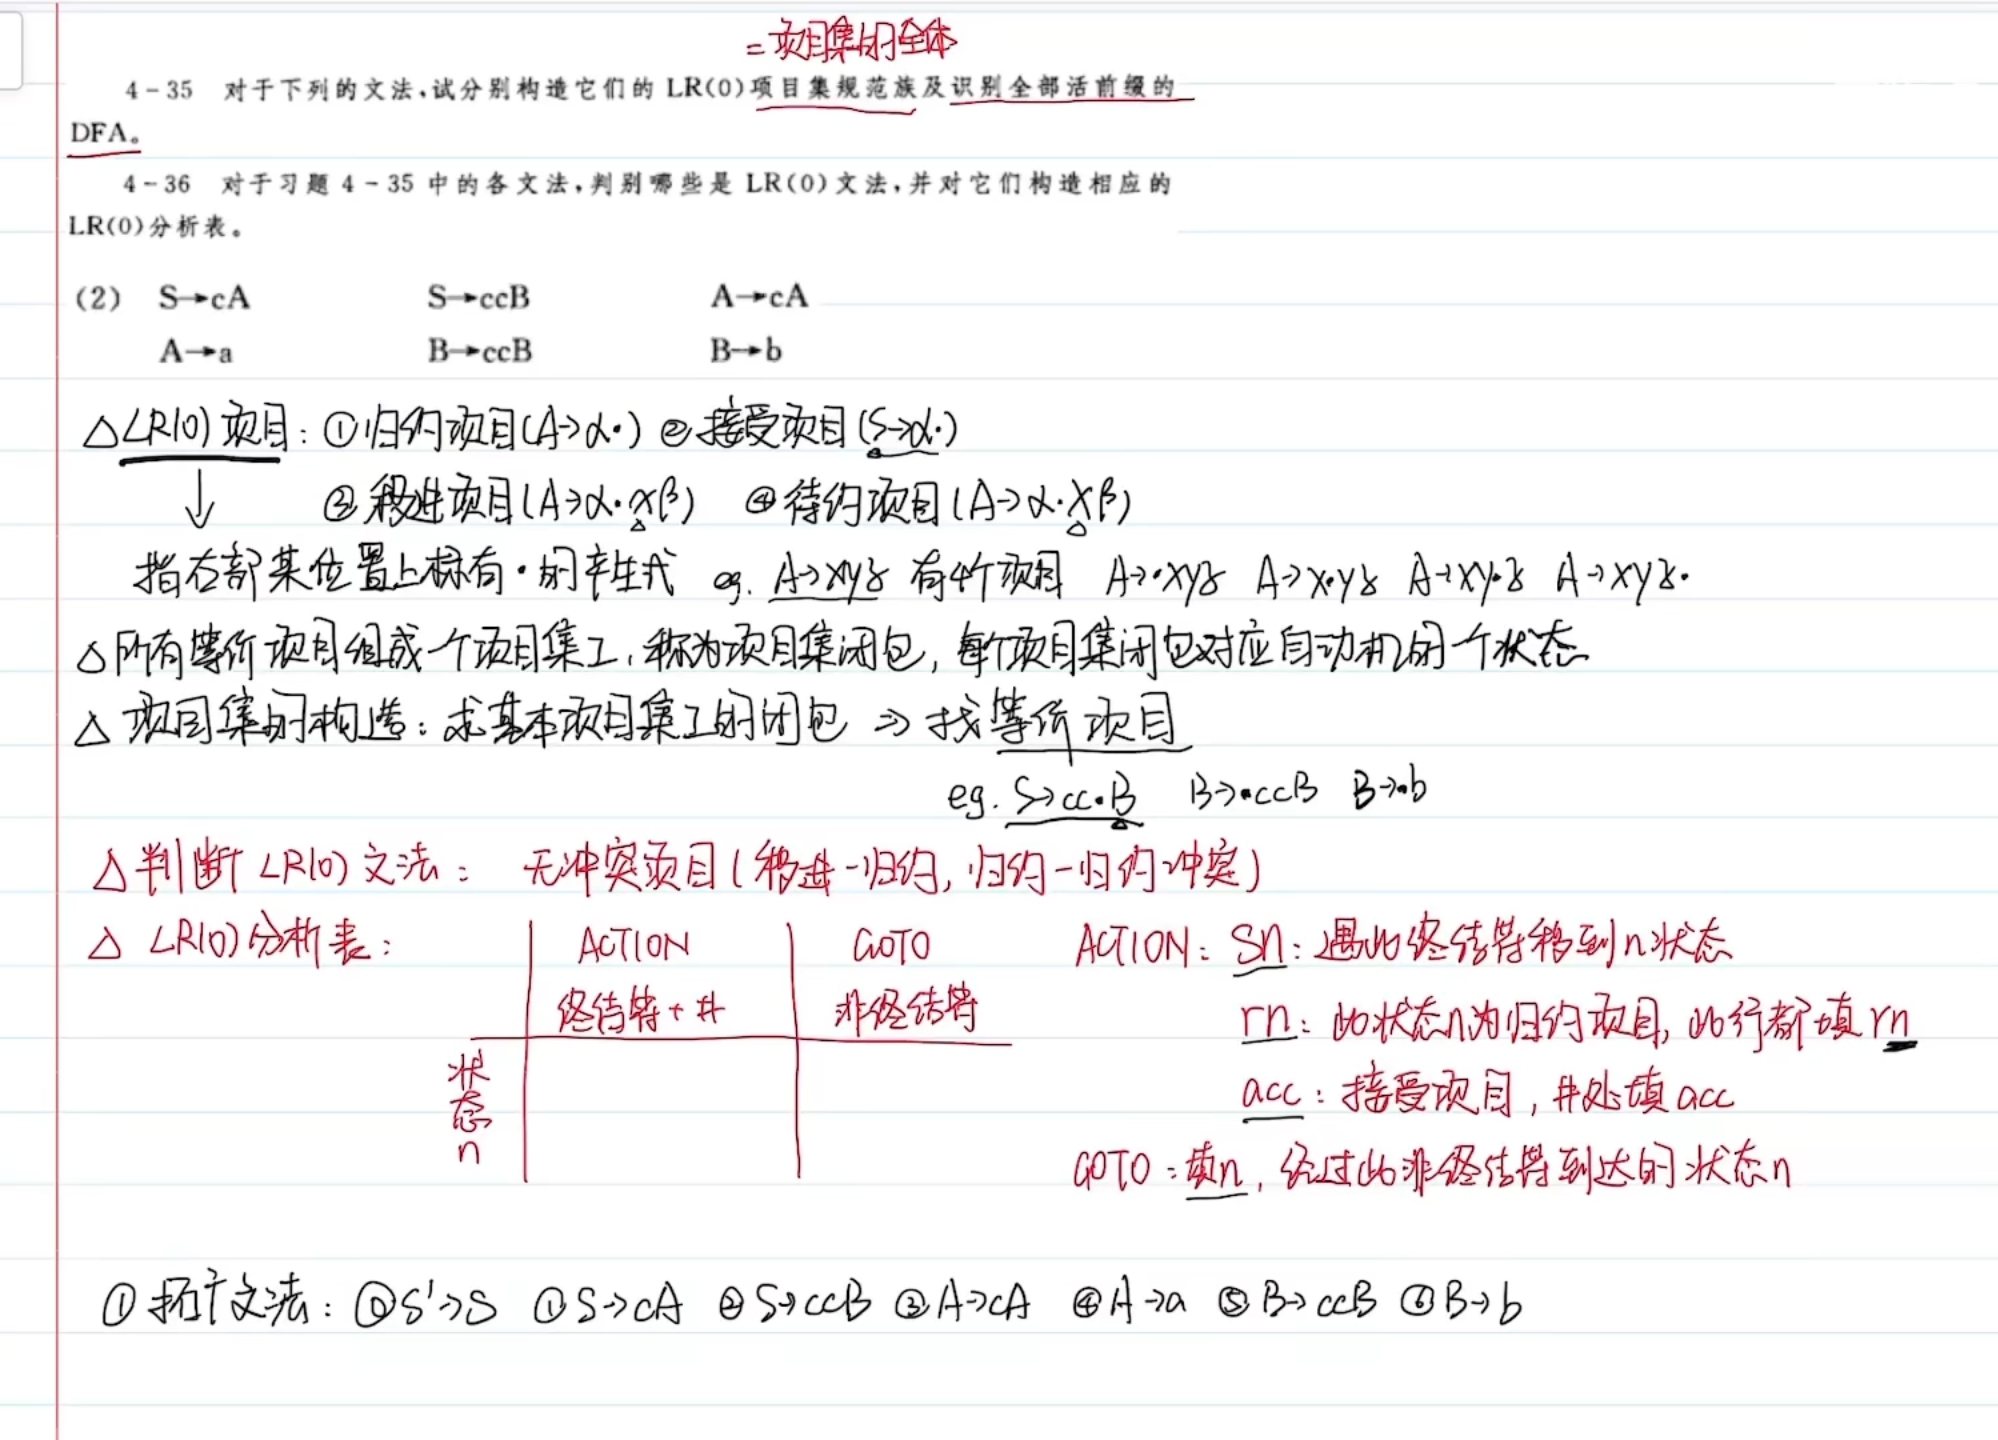 =项目集的全体
4-35 对于下列的文法,试分别构造它们的LR(0)项目集规范族及识别全部活前缀的
DFA。
4-36 对于习题4-35中的各文法,判别哪些是LR(0)文法,并对它们构造相应的
LR(0)分析表。
(2) S→cA S→ccB A→cA
A→a B→ccB B→b
△LR(0)项目:①归约项目(A→α·) ②接受项目(S→α·)
③移进项目(A→α·xβ) ④待约项目(A→α·Xβ)
↓
指右部某位置上标有·的产生式 eg. A→xyz 有4个项目 A→·xyz A→x·yz A→xy·z A→xyz·
△所有等价项目组成一个项目集I,称为项目集闭包,每个项目集闭包对应自动机的一个状态
△项目集的构造:求基本项目集I的闭包 ⇒ 找等价项目
eg. S→cc·B B→·ccB B→·b
△判断LR(0)文法: 无冲突项目(移进-归约,归约-归约冲突)
△LR(0)分析表: ACTION GOTO
终结符+# 非终结符
状态n
ACTION: Sn:遇此终结符移到n状态
rn:此状态n为归约项目,此行都填rn
acc:接受项目,#处填acc
GOTO:填n,经过此非终结符到达的状态n
①拓广文法:⓪S'→S ①S→cA ②S→ccB ③A→cA ④A→a ⑤B→ccB ⑥B→b